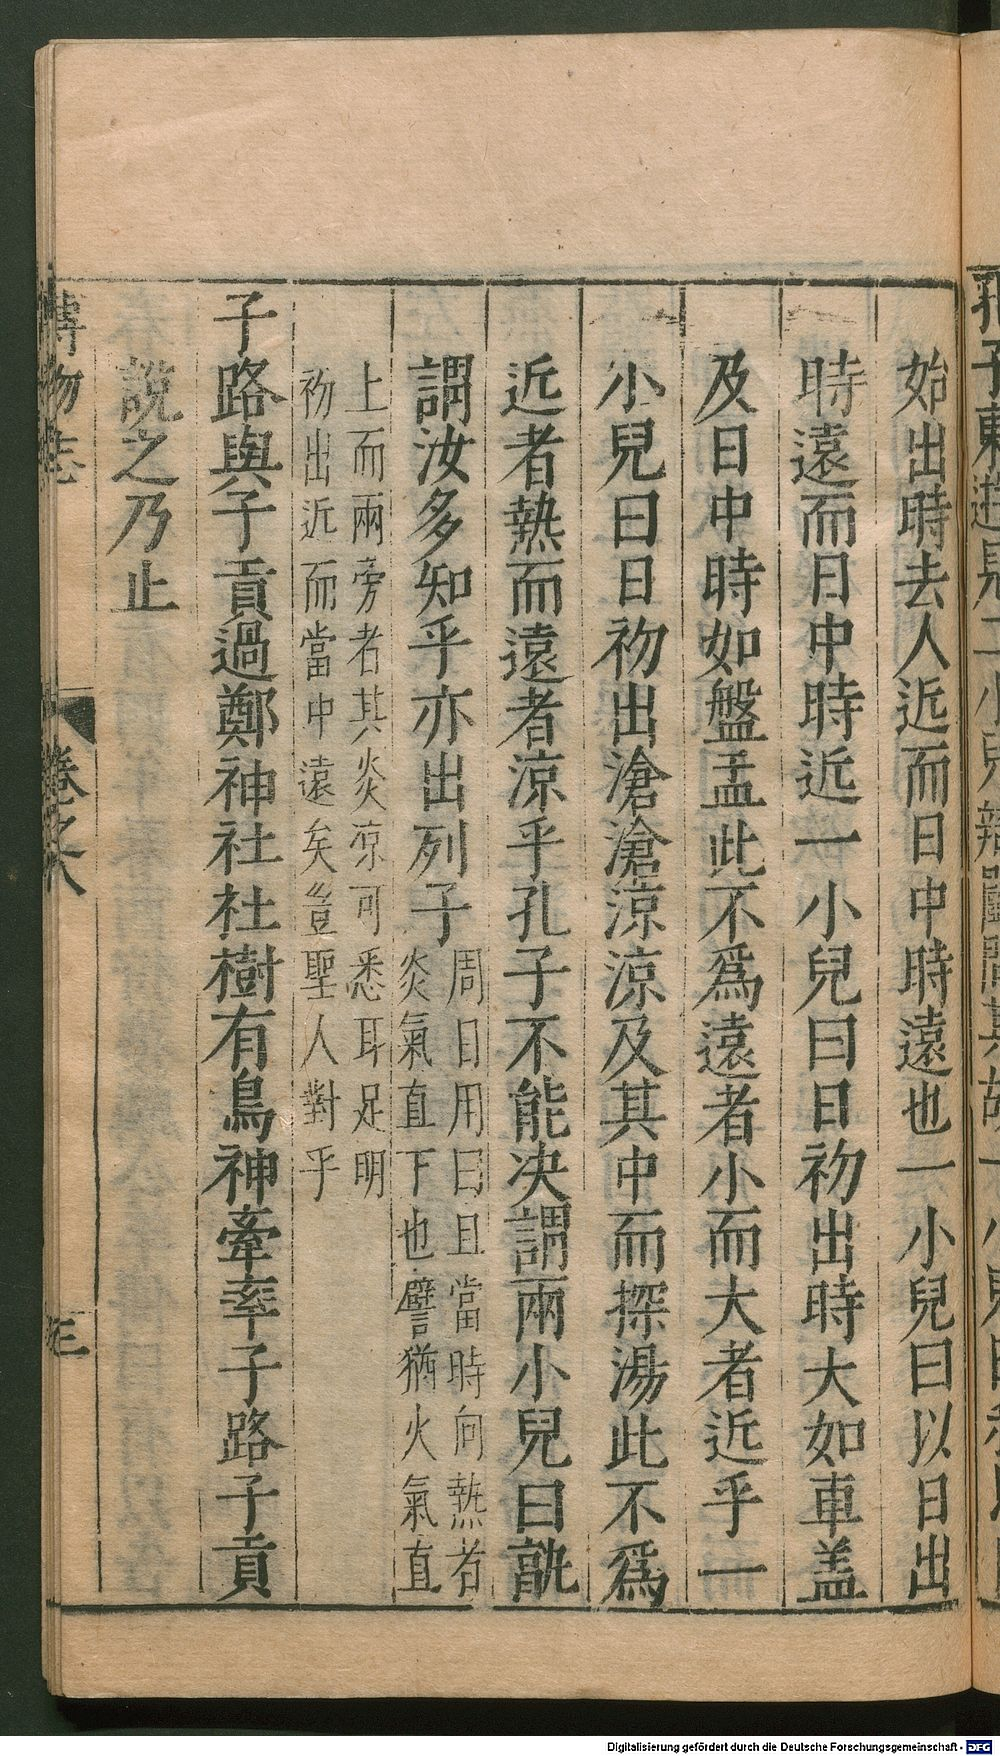 始出時去人近而日中時遠也一小兒曰以日出
時遠而日中時近一小兒曰日初出時大如車盖
及日中時如盤盂此不爲遠者小而大者近乎一
小兒曰日初出滄滄涼涼及其中而探湯此不爲
近者熱而遠者涼乎孔子不能决謂兩小兒曰孰
謂汝多知乎亦出列子
周日用曰日當時向熱者
炎氣直下也譬猶火氣直
上而兩旁者其炎凉可悉耳足明
初出近而當中遠矣豈聖人對乎
子路與子貢過鄭神社社樹有鳥神牽率子路子貢
說之乃止
博物志
卷之八
三
Digitalisierung gefördert durch die Deutsche Forschungsgemeinschaft - DFG